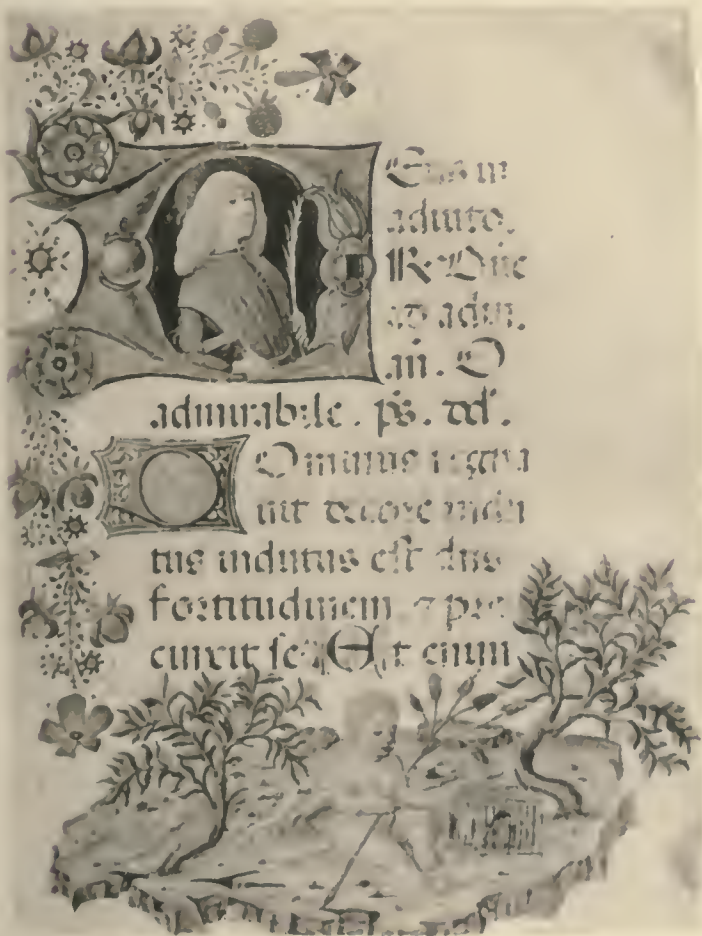 DEus in
adiuto.
R Dñe
ad adiu.
añ. O
admirabile. ps. dd.
DOminus regna
uit decore indu
tus indutus est dñs
fortitudinem & pre
cinxit se Et enim